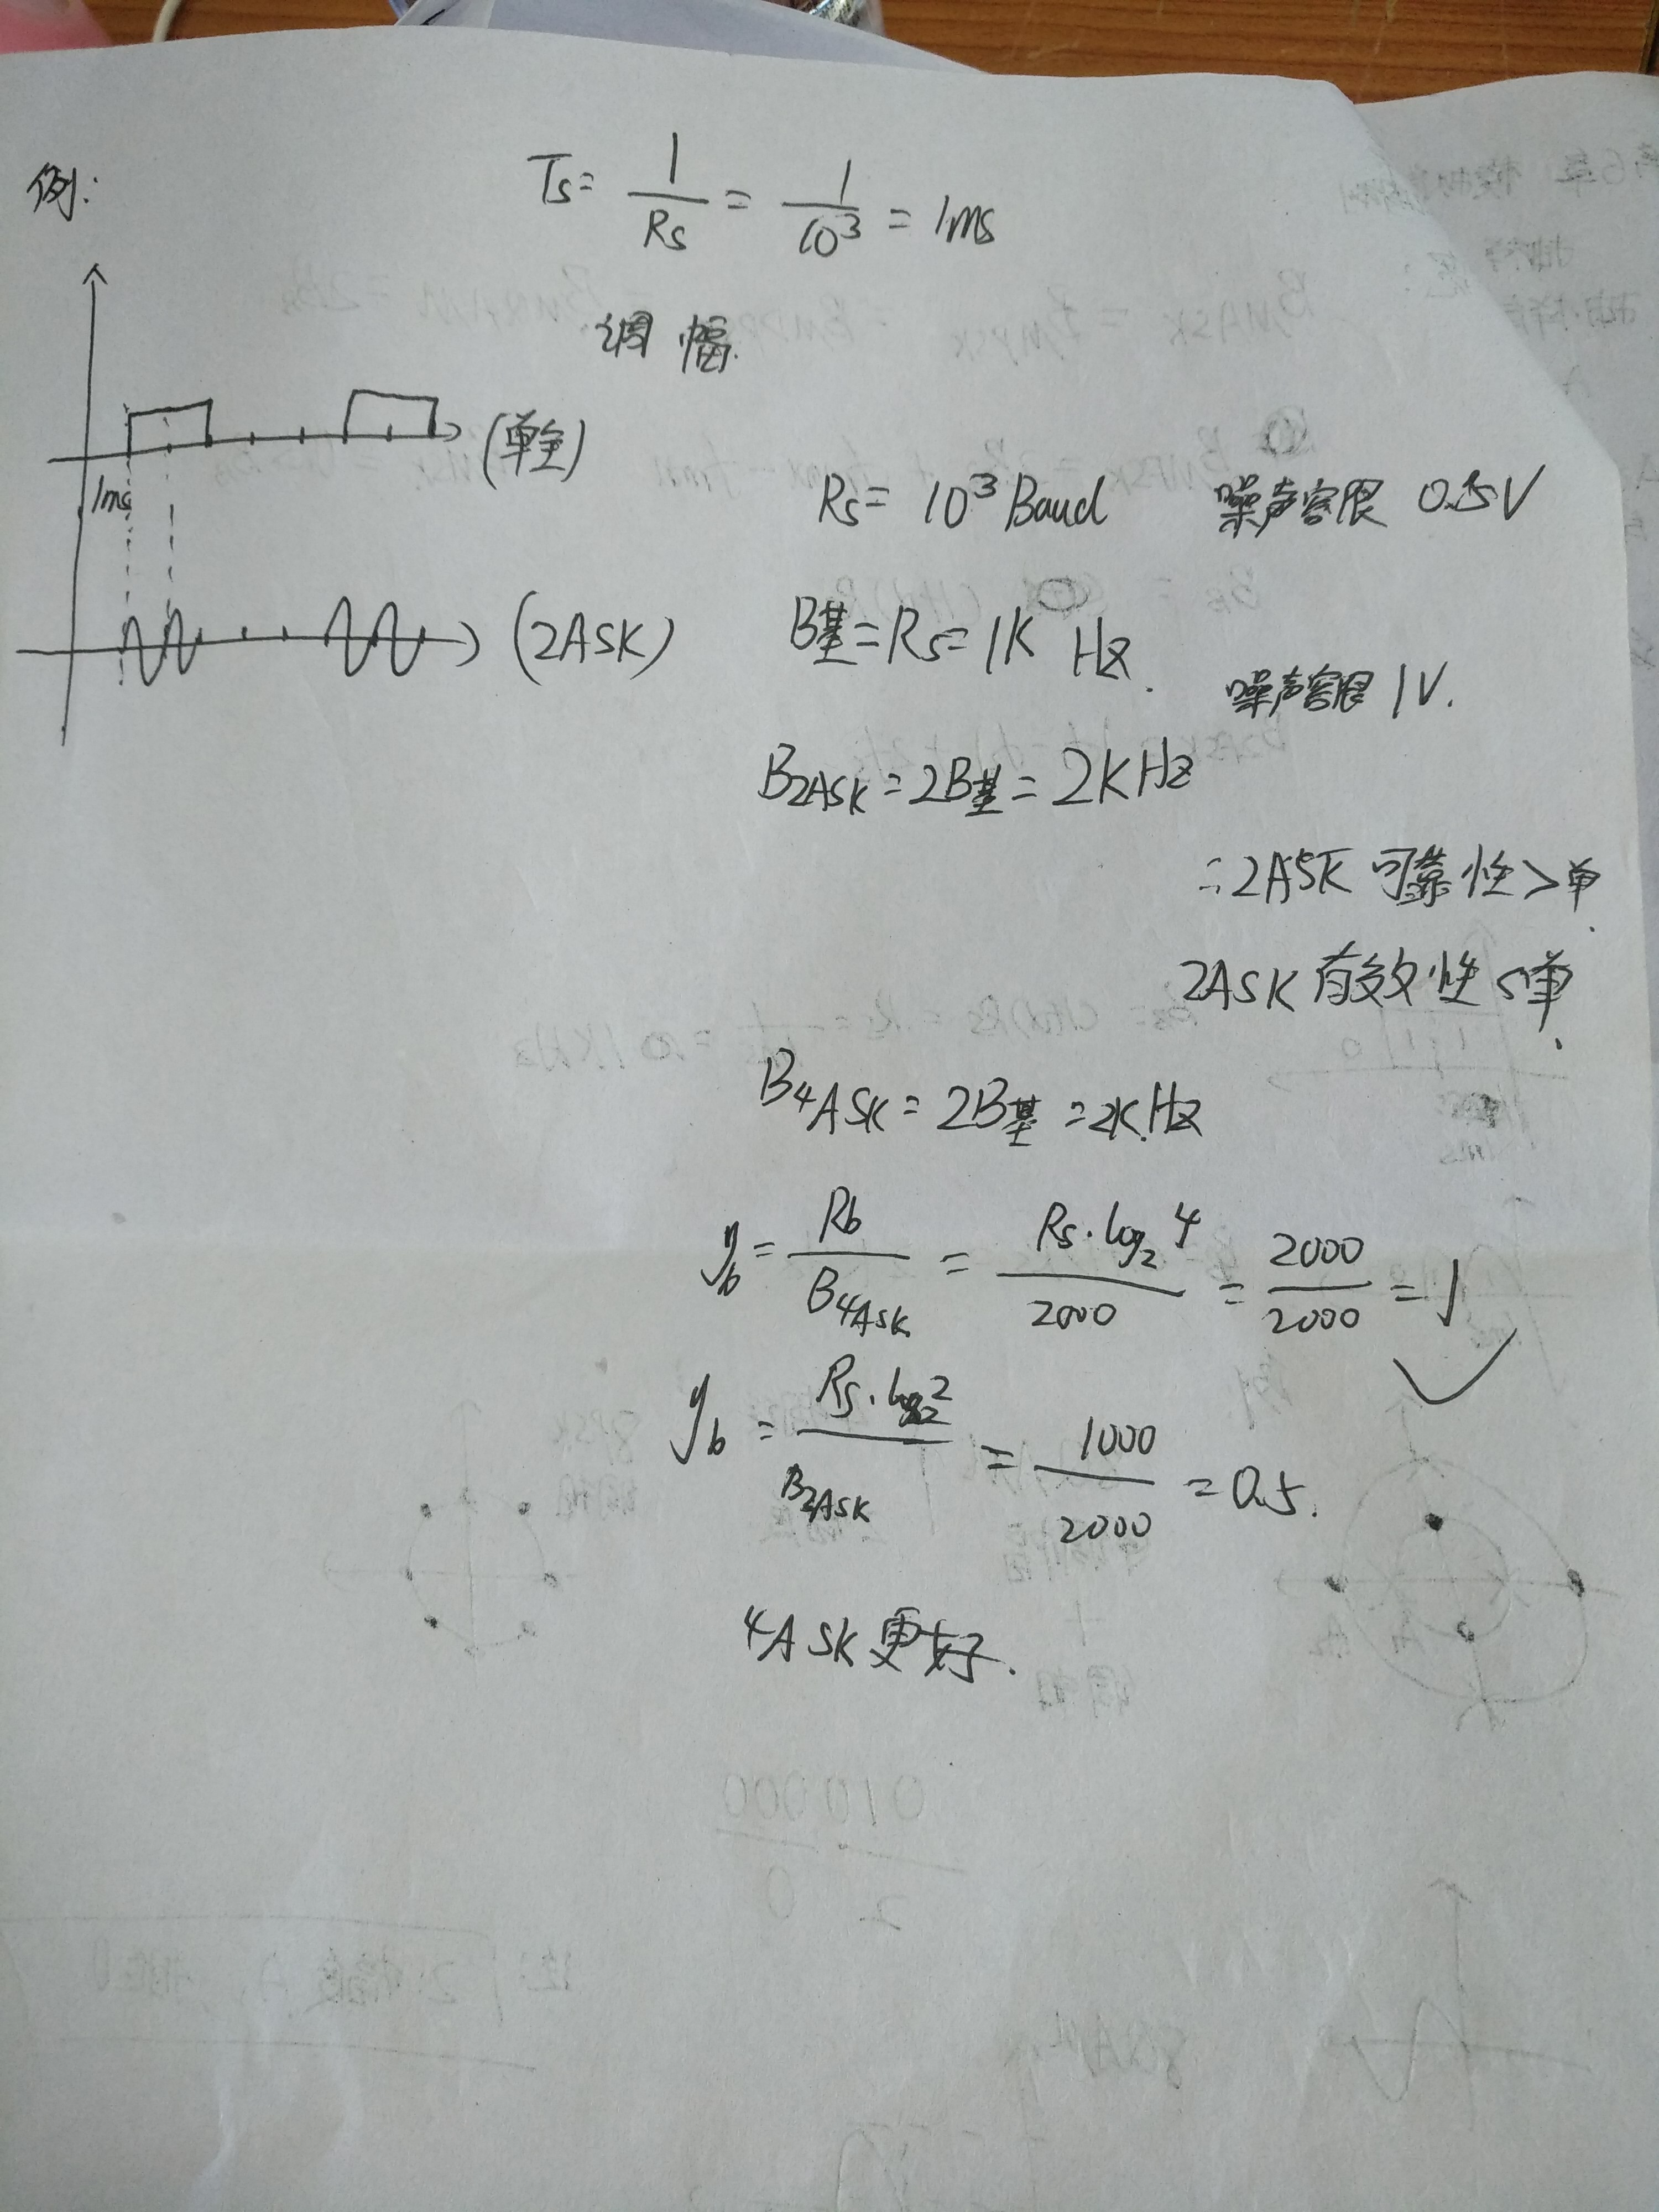 例:
Ts = 1/Rs = 1/10³ = 1ms
调幅.
(单全)
1ms
Rs = 10³ Baud 噪声容限 0.5V
(2ASK)
B基 = Rs = 1K Hz.
噪声容限 1V.
B2ASK = 2B基 = 2KHz
∴2ASK 可靠性>单.
2ASK 有效性<单.
B4ASK = 2B基 = 2K.Hz
ηb = Rb/B4ASK = Rs·log₂4/2000 = 2000/2000 = 1
ηb = Rs·log₂2/B2ASK = 1000/2000 = 0.5.
4ASK更好.